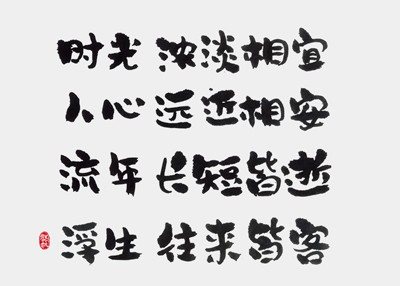 时光 浓淡相宜
人心 远近相安
流年 长短皆逝
浮生 往来皆客